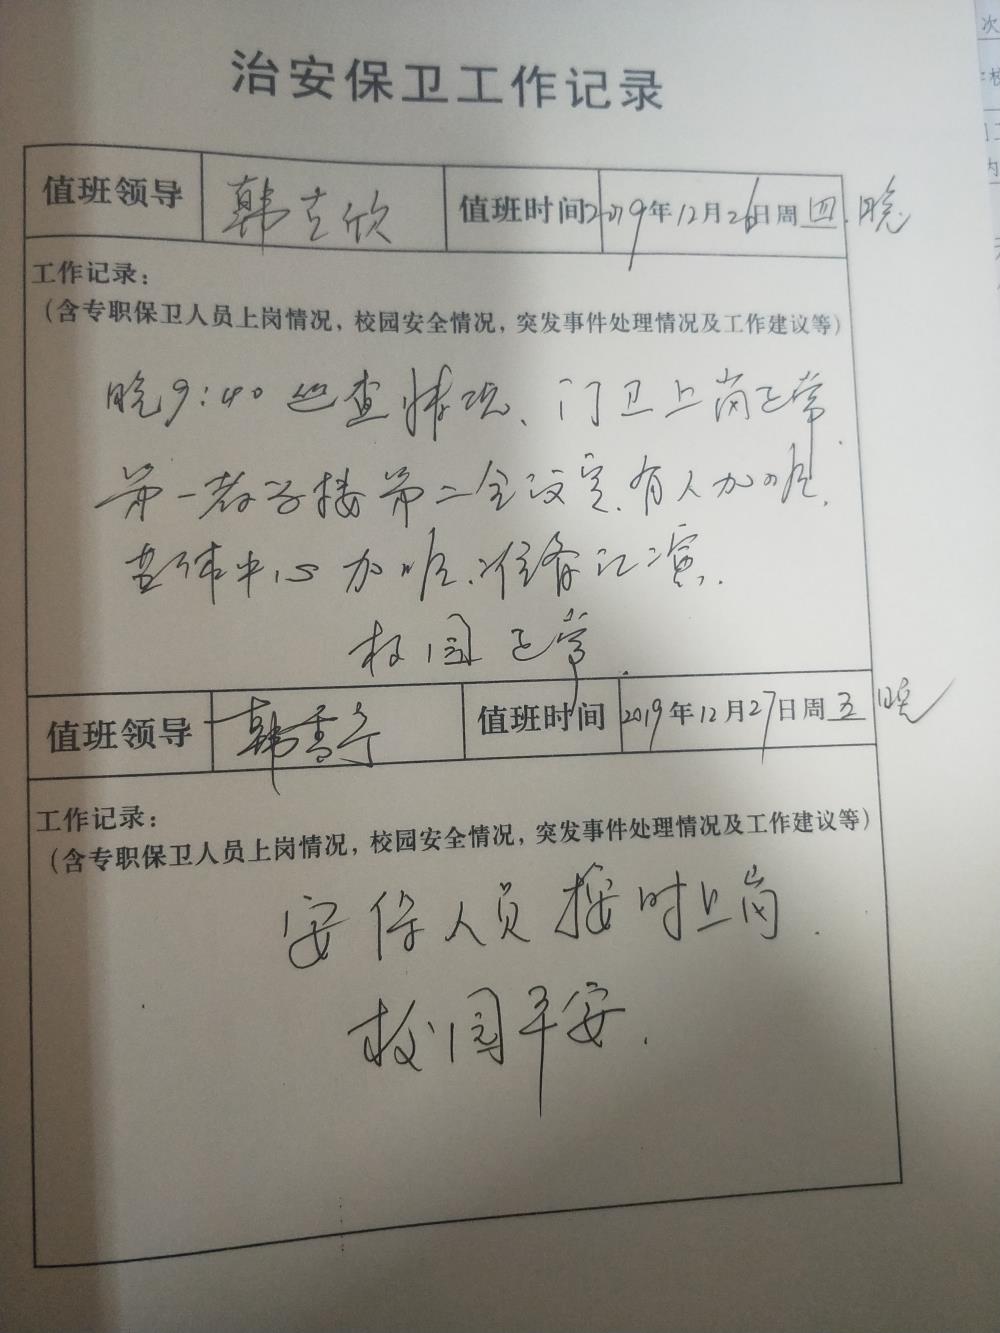 治安保卫工作记录
值班领导 韩克欣 值班时间 2019年12月26日周四.晚
工作记录：
（含专职保卫人员上岗情况，校园安全情况，突发事件处理情况及工作建议等）
晚9:40巡查情况、门卫上岗正常.
第一教学楼第二会议室.有人加班.
艺体中心加班.准备汇演.
校园正常.
值班领导 韩 值班时间 2019年12月27日周五 晚
工作记录：
（含专职保卫人员上岗情况，校园安全情况，突发事件处理情况及工作建议等）
安保人员按时上岗.
校园平安.